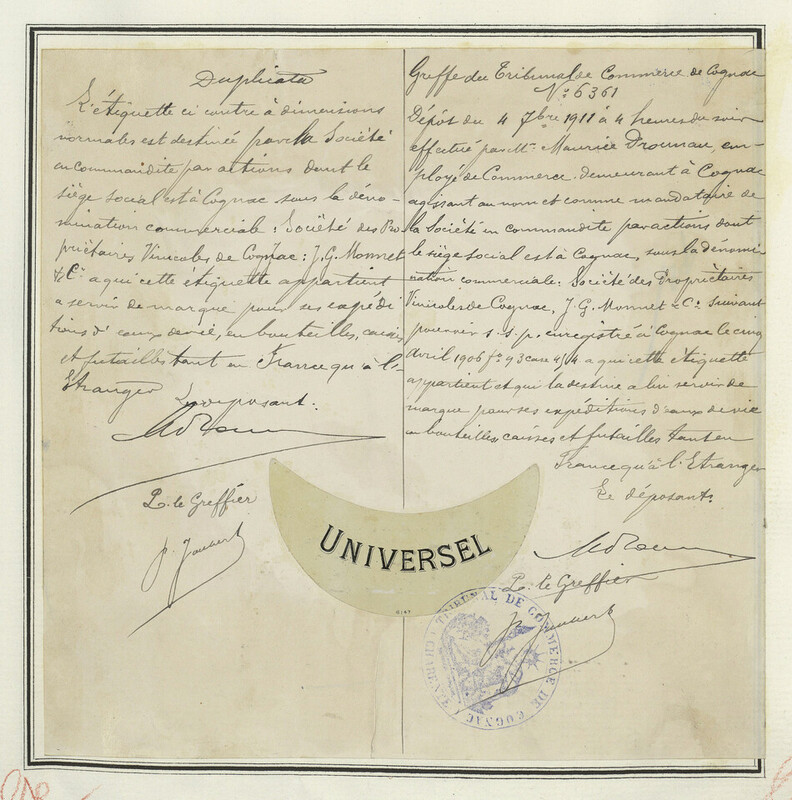 Duplicata
L'étiquette ci contre à dimensions
normales est destinée par la Société
en commandite par actions dont le
siège social est à Cognac sous la déno-
mination commerciale: Société des Pro
priétaires Vinicoles de Cognac: J. G. Monnet
& Cie à qui cette étiquette appartient
a servir de marque pour ses expédi
tions d'eaux de vie, en bouteilles, caisses
et futailles tant en France qu'à l'-
Etranger
Le déposant.
P. le Greffier
P. Joubert
Greffe du Tribunal de Commerce de Cognac
N° 6361
Dépôt du 4 7bre 1911 à 4 heures du soir
effectué par Mr. Maurice Drounau, em-
ployé de Commerce. demeurant à Cognac
agissant au nom et comme mandataire de
la Société en commandite par actions dont
le siège social est à Cognac, sous la dénomi
nation commerciale: Société des Propriétaires
Vinicoles de Cognac, J. G. Monnet & Co. Suivant
pouvoir s.s.p. enregistré à Cognac le cinq
Avril 1906 fo 93 case 4/4 a qui cette etiquette
appartient et qui la destine a lui servir de
marque pour ses expéditions d'eaux de vie
en bouteilles caisses et futailles tant en
France qu'à l'Etranger
Le déposant.
P. le Greffier
P. Joubert
UNIVERSEL
TRIBUNAL DE COMMERCE DE COGNAC (CHARENTE)